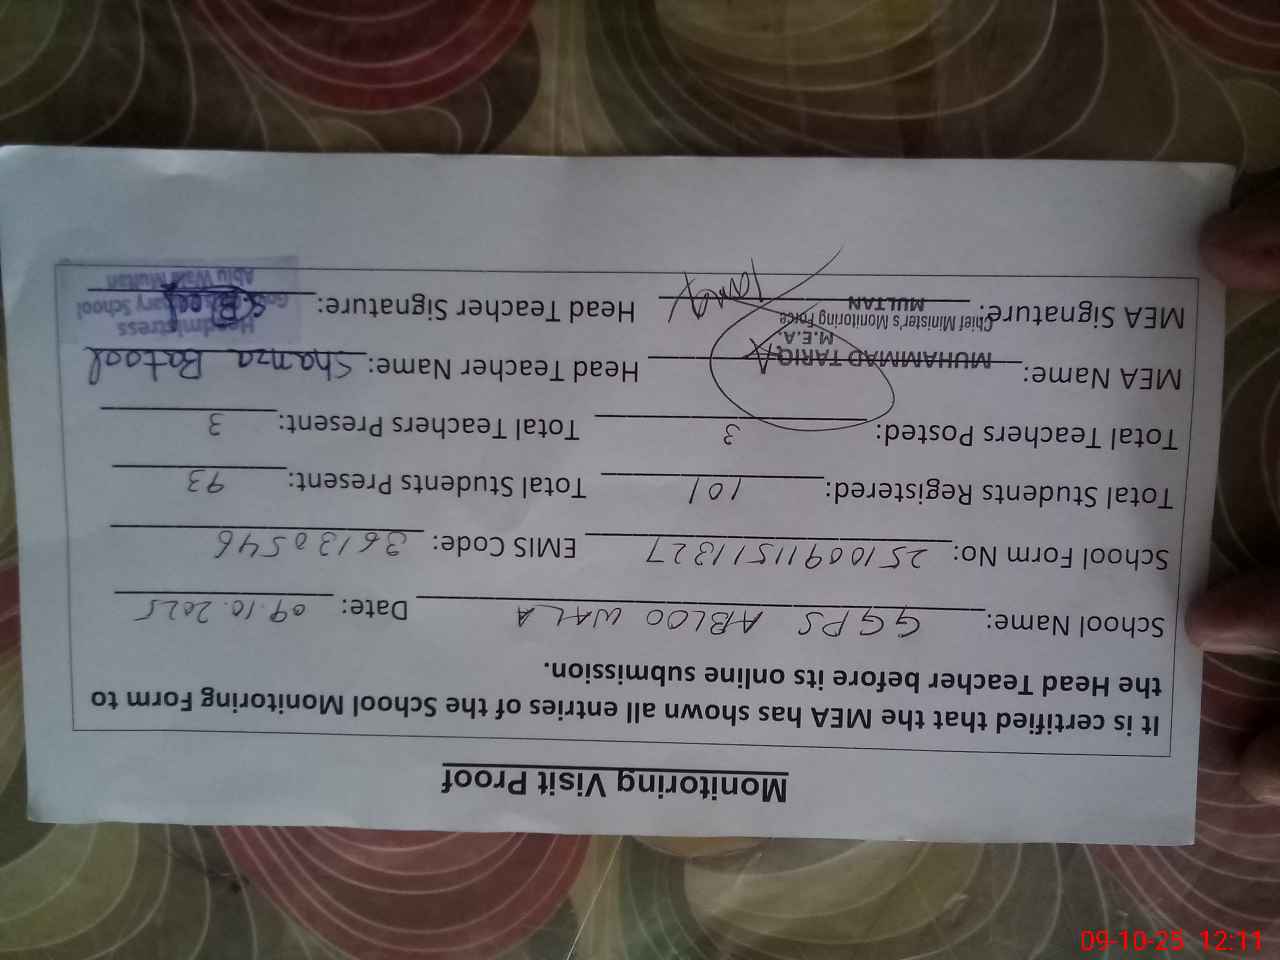 Monitoring Visit Proof
It is certified that the MEA has shown all entries of the School Monitoring Form to
the Head Teacher before its online submission.
School Name: GGPS ABLOO WALA Date: 09.10.2025
School Form No: 2510091151327 EMIS Code: 36130546
Total Students Registered: 101 Total Students Present: 93
Total Teachers Posted: 3 Total Teachers Present: 3
MEA Name: MUHAMMAD TARIQ Head Teacher Name: Shamza Batool
M.E.A.
Chief Minister's Monitoring Force
MULTAN
MEA Signature: Head Teacher Signature:
Headmistress
School
Ablu Wala Multan
09-10-25 12:11